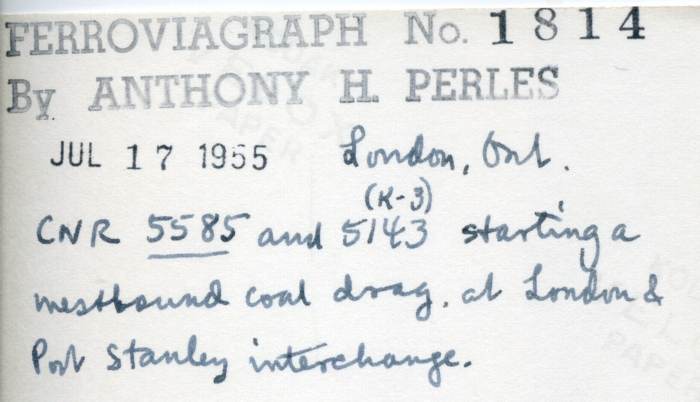 FERROVIAGRAPH No. 1814
By ANTHONY H. PERLES
JUL 17 1955 London, Ont.
(K-3)
CNR 5585 and 5143 starting a
westbound coal drag, at London &
Port Stanley interchange.